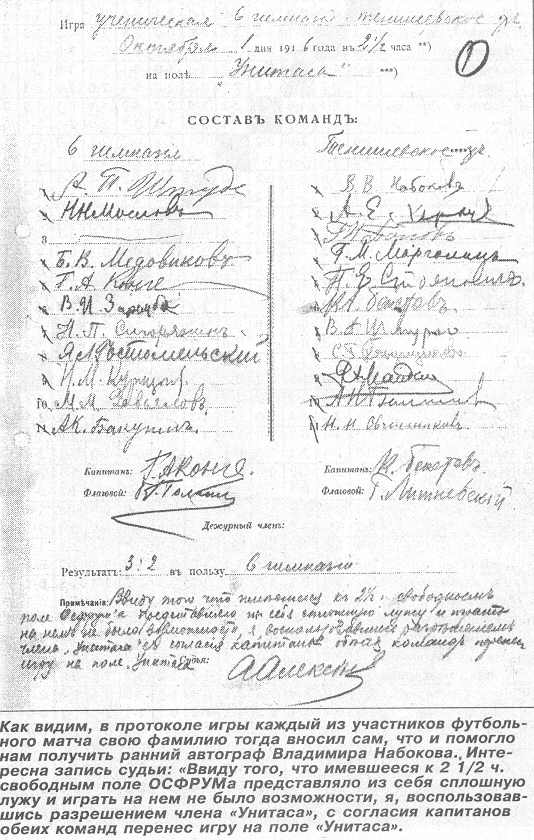 Игра ученическая 6 гимназiи - Тенишевское уч.
Октября 1 дня 1916 года въ 2½ часа **)
на полѣ „Унитаса" ***)
1
СОСТАВЪ КОМАНДЪ:
6 гимназiи
1 А. П.
2 Н Н Мословъ
3
4 Б. В. Медовиковъ
5 Г. А Конге
6 В. И. Заруба
7 Н. П.
8 Я. А. Костомельский
9 Н. М.
10 М. М. Завьяловъ
11 А К. Бакулинъ
Тенишевское уч.
1 В. В Набоковъ
2 А. Е.
3
4 Г. М. Марголинъ
5
6 Н. Бекетовъ
7 В. А
8 С. Г.
9
10
11 Н. Н. Овчинниковъ
Капитанъ: Г. А Конге.
Флаговой:
Капитанъ: Н. Бекетовъ
Флаговой: Г. Литневский
Дежурный членъ:
Результатъ: 3:2 въ пользу 6 гимназiи
Примѣчанія: Ввиду того что имѣвшееся къ 2½ ч. свободнымъ
поле Осфрум'а представляло изъ себя сплошную лужу и играть
на немъ не было возможности, я, воспользовавшись разрѣшенiемъ
члена „Унитаса", съ согласiя капитановъ обѣихъ командъ перенесъ
игру на поле „Унитаса
Судья:
Как видим, в протоколе игры каждый из участников футболь-
ного матча свою фамилию тогда вносил сам, что и помогло
нам получить ранний автограф Владимира Набокова. Инте-
ресна запись судьи: «Ввиду того, что имевшееся к 2 1/2 ч.
свободным поле ОСФРУМа представляло из себя сплошную
лужу и играть на нем не было возможности, я, воспользовав-
шись разрешением члена «Унитаса», с согласия капитанов
обеих команд перенес игру на поле «Унитаса».